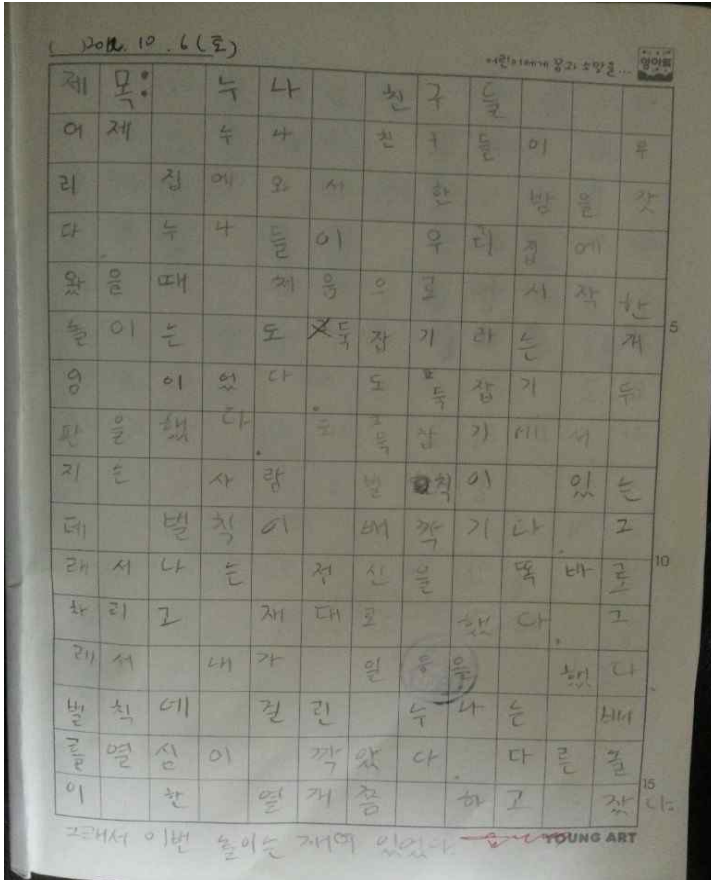 ( )2012. 10. 6(토)
어린이에게 꿈과 소망을... 영아트
제목: 누나 친구들
어제 누나 친구들이 우
리 집에 와서 한 밤을 잤
다. 누나들이 우리 집에
왔을때 처음으로 시작한
놀이는 도둑잡기라는 개
임 이었다. 도둑잡기 두
판을 했다. 도둑잡기에서
지는 사람 벌칙이 있는
데 벌칙이 배깍기다. 그
래서나는 정신을 똑바로
차리고 재대로 했다. 그
래서 내가 일등을 했다.
벌칙에 걸린 누나는 배
를열심이 깍았다. 다른놀
이 한 열개쯤 하고 잤다.
그래서 이번 놀이는 재미 있었다.
5
10
15
YOUNG ART